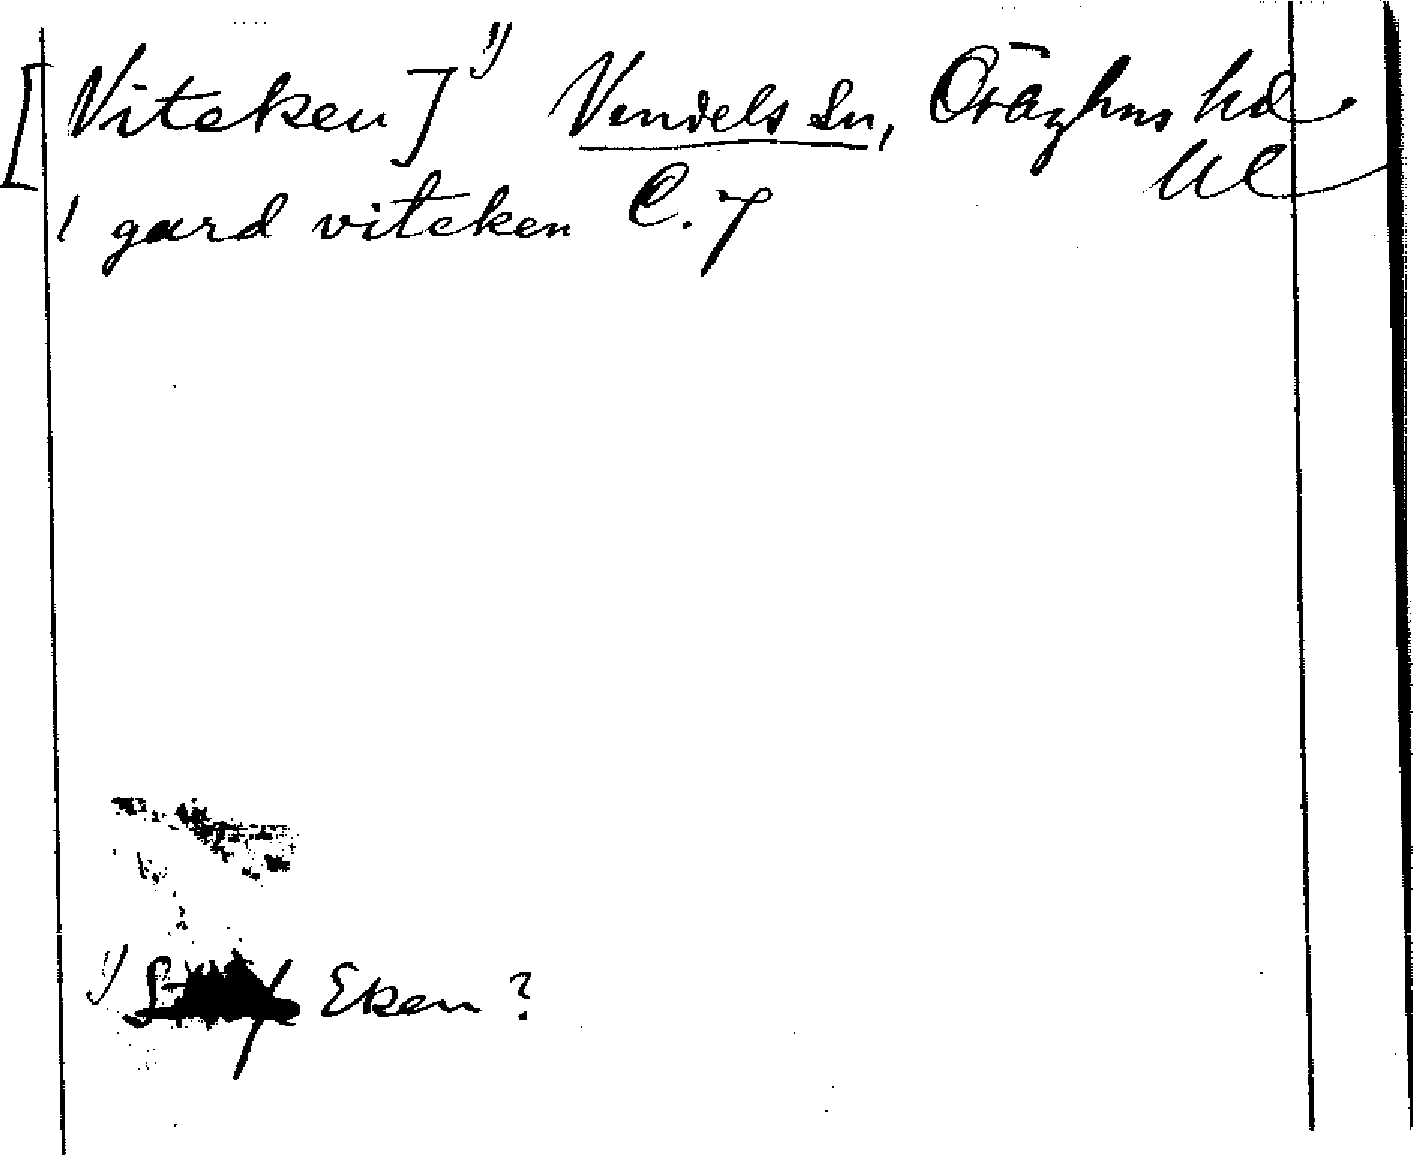 [Viteken] 1) Vendels Sn, Örbyhus hd
Ul
1 gard viteken C. 7
1) Eken?